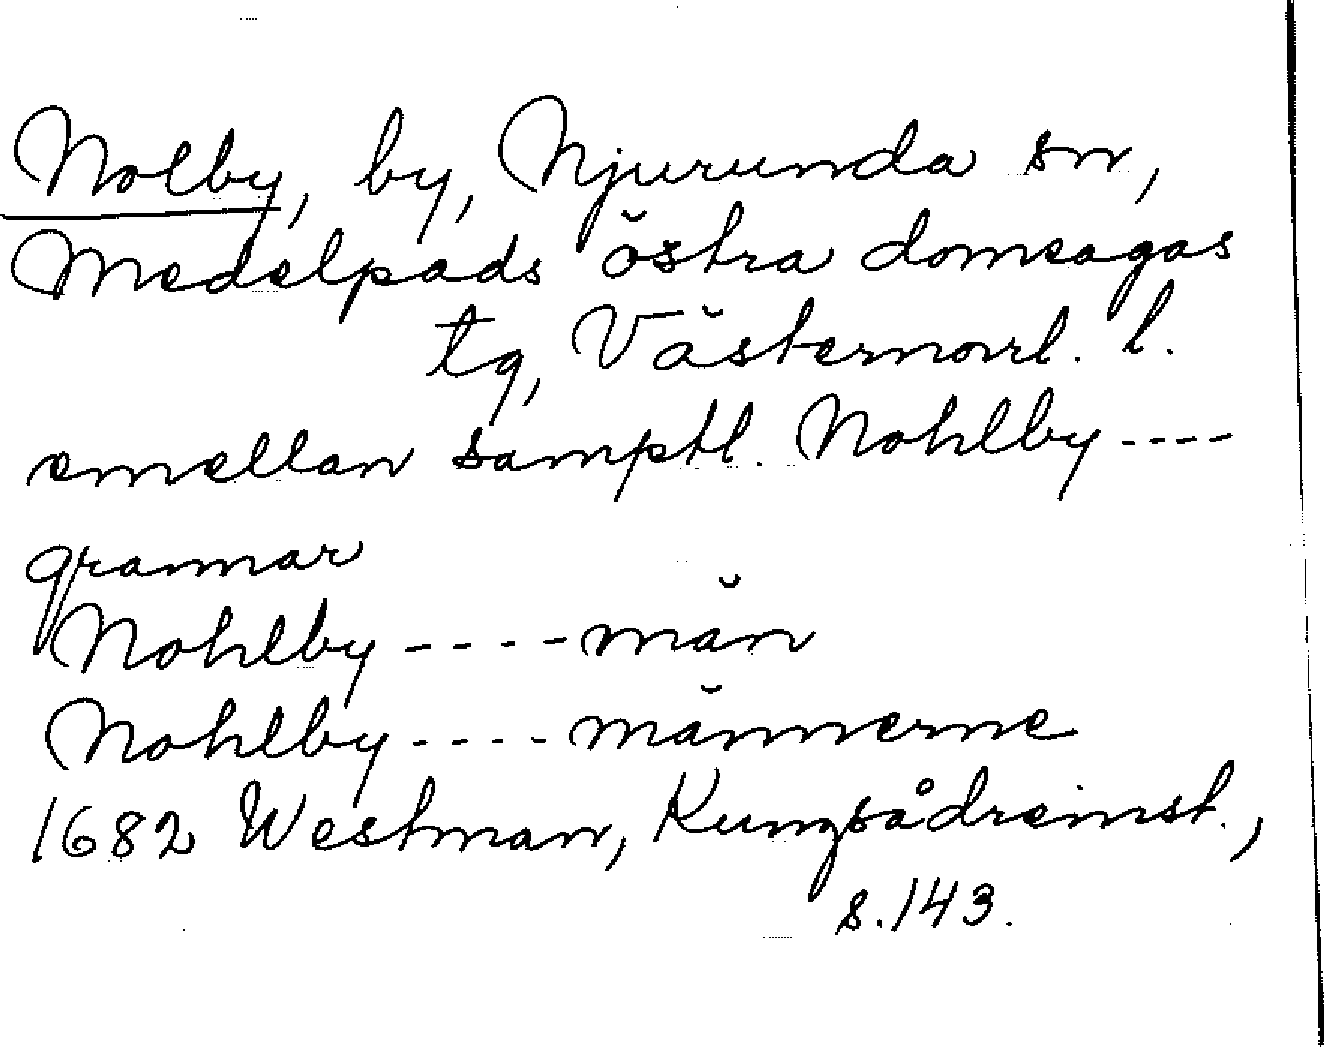 Nolby, by, Njurunda sn,
Medelpads östra domsagas
tg, Västernorrl. l.
emellan samptl. Nohlby ----
grannar
Nohlby ---- män
Nohlby ---- männerne
1682 Westman, Kungsådreinst.,
s. 143.